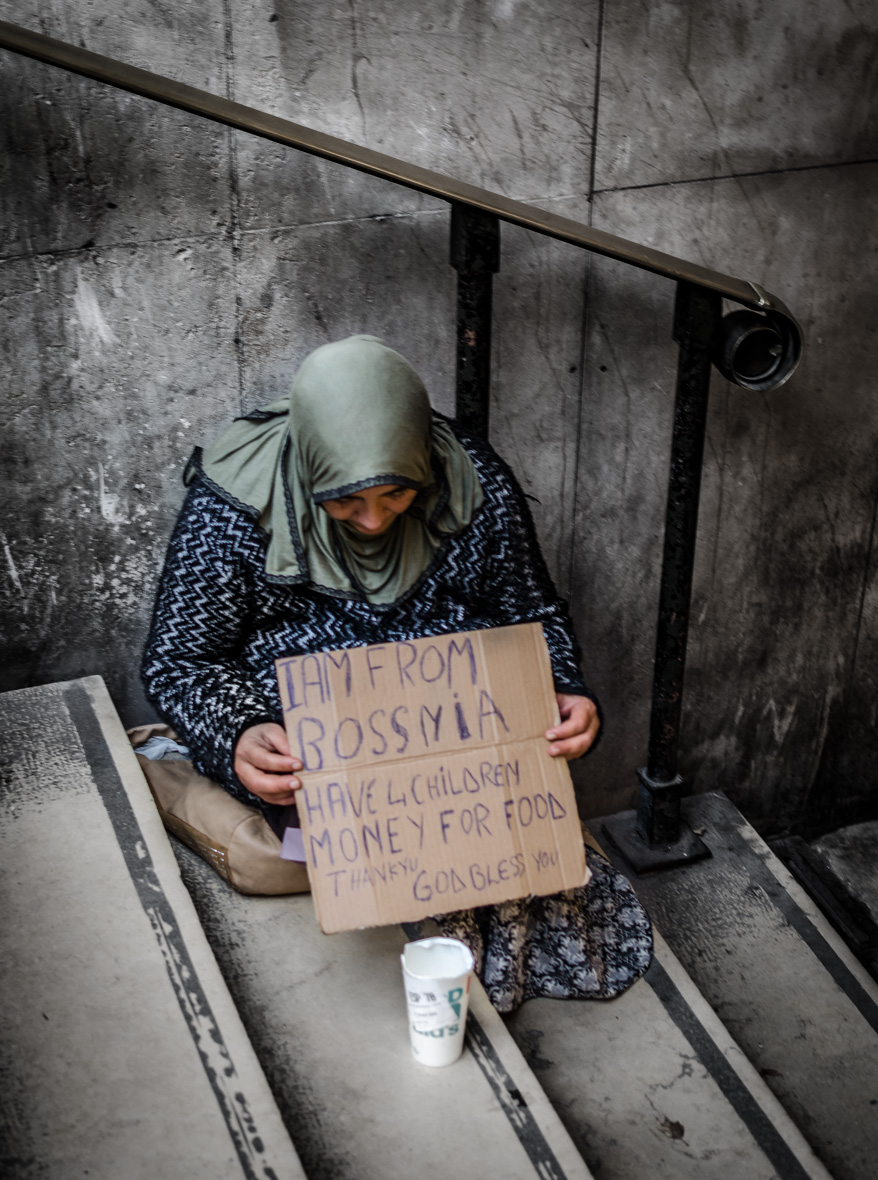 I AM FROM
BOSSNiA
HAVE 4 CHiLDREN
MONEY FOR FOOD
THANKYU GOD BLESS YOU